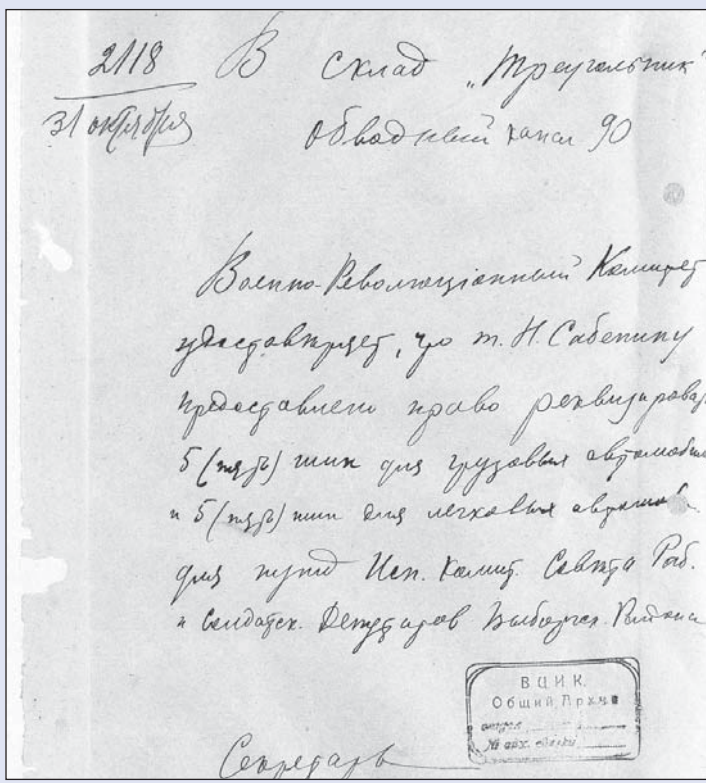 2118 В склад „Треугольник"
31 октября Обводный канал 90
Военно-Революціонный Комитет
удостоверяет, что т. Н. Сабенину
предоставлено право реквизировать
5 (пять) шин для грузовых автомобил
и 5 (пять) шин для легковых автомоб.
для нужд Исп. Комит. Совета Раб.
и Солдатск. Депутатов Выборгск. Района
Секретарь
ВЦИК.
Общий Архив
№ арх.